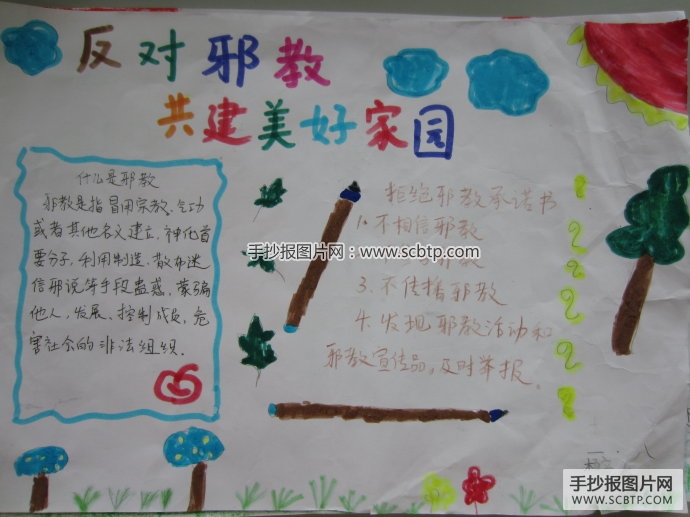 反对邪教
共建美好家园
什么是邪教
邪教是指冒用宗教、气功
或者其他名义建立,神化首
要分子,利用制造、散布迷
信邪说等手段蛊惑、蒙骗
他人,发展、控制成员,危
害社会的非法组织.
拒绝邪教承诺书
1.不相信邪教
手抄报图片网:www.scbtp.com
邪教
3.不传播邪教
4.发现邪教活动和
邪教宣传品,及时举报。
手抄报图片网
www.SCBTP.COM